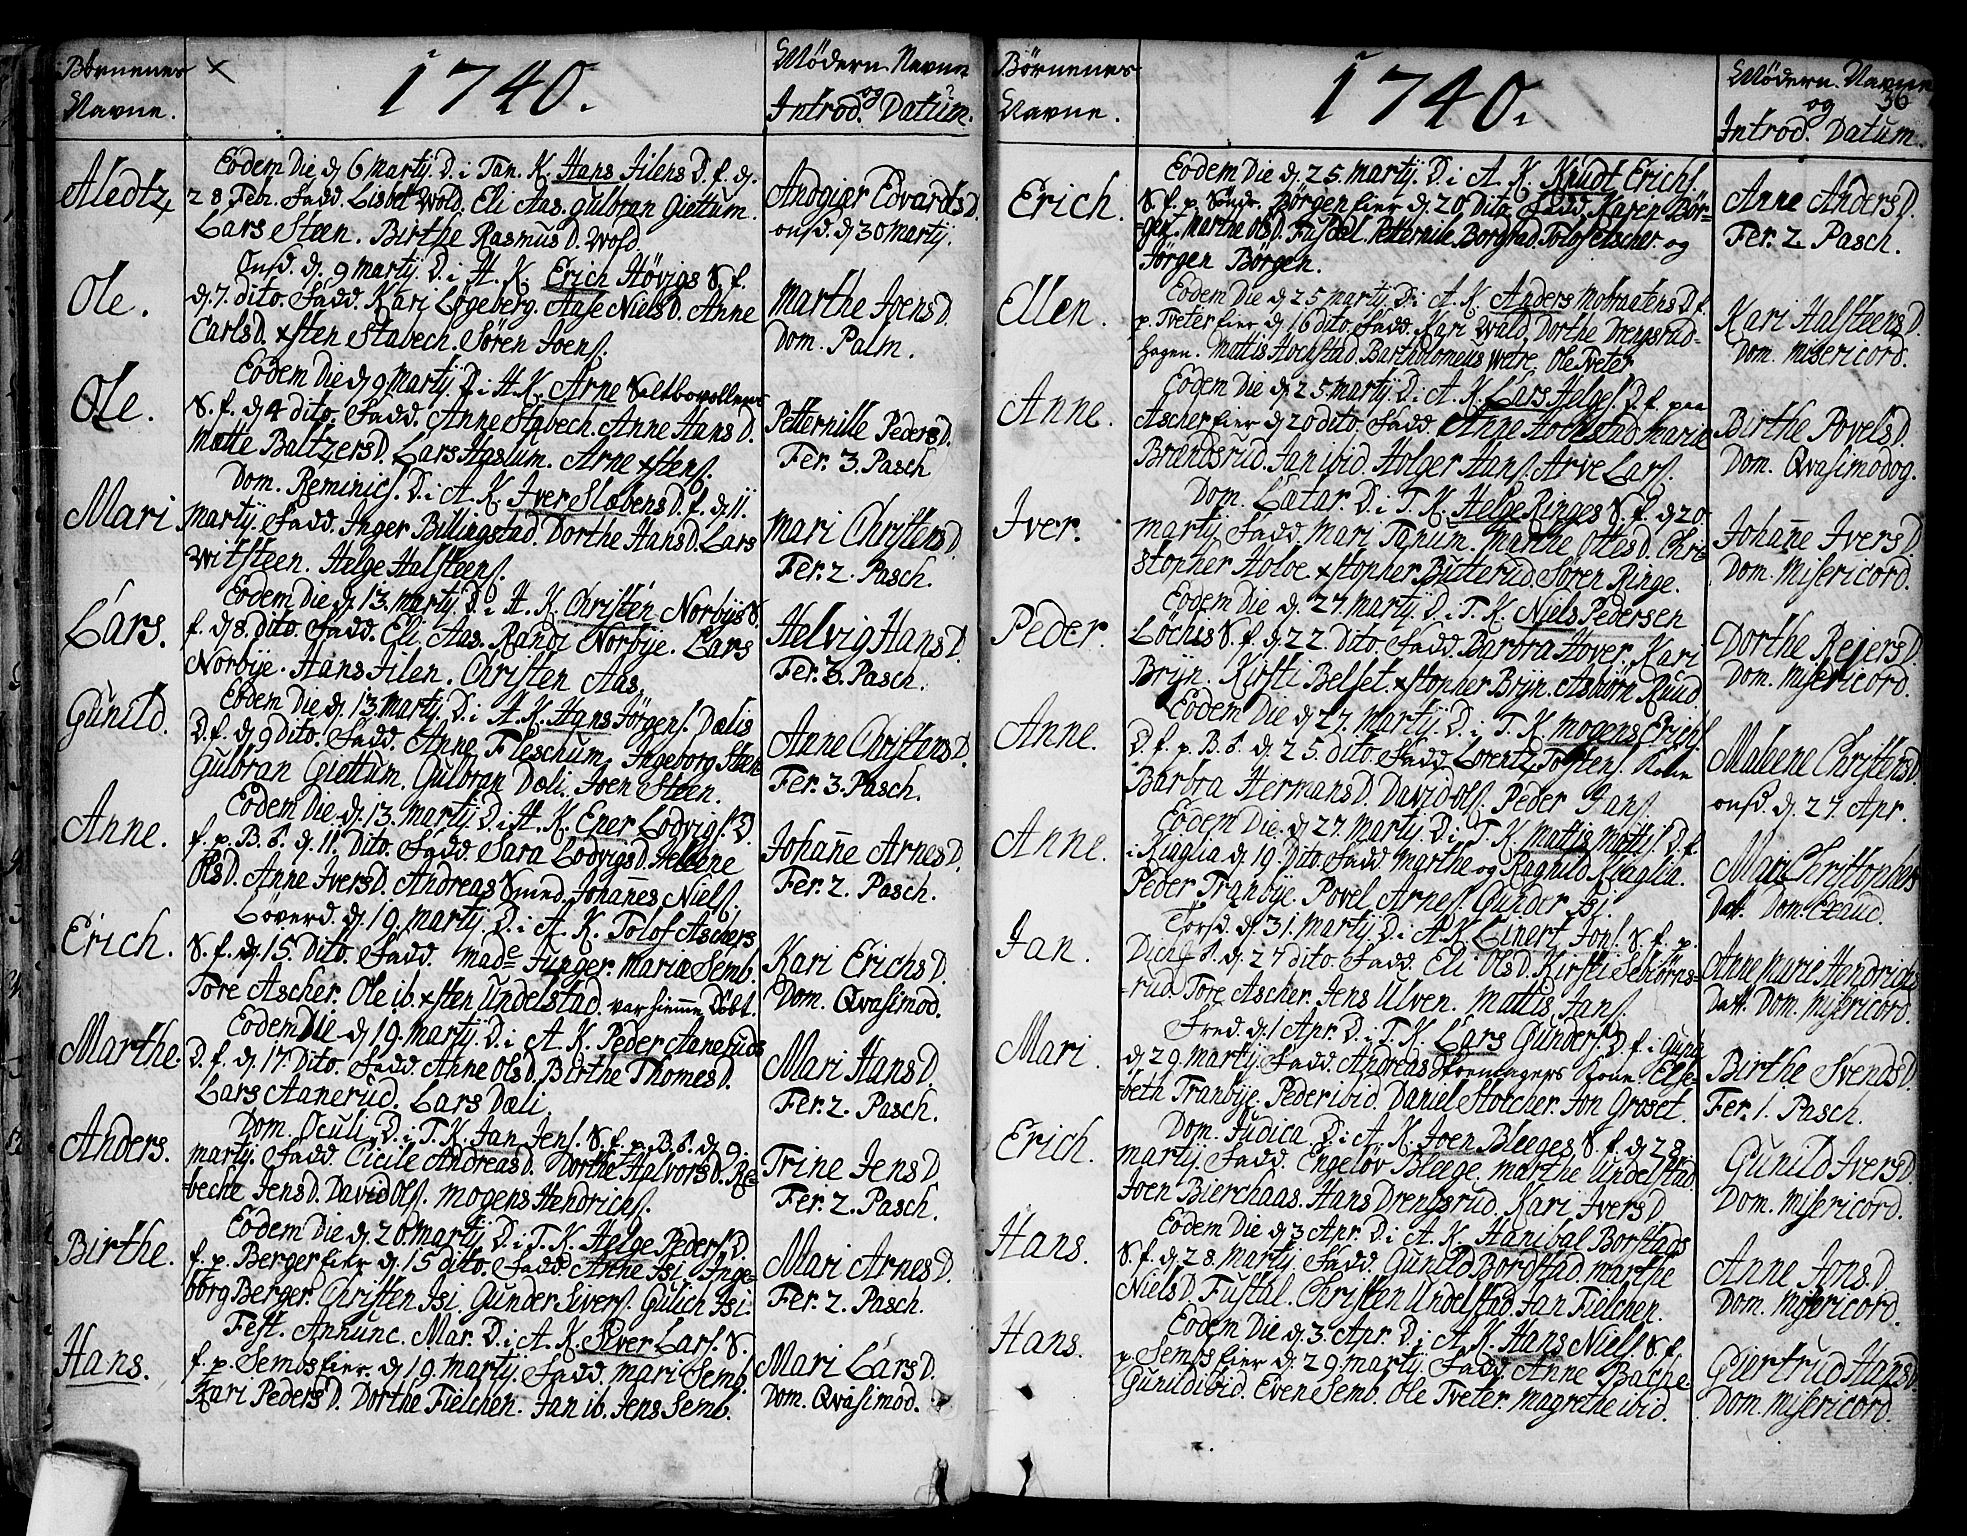 Børnenes
Navne.
1740.
Mödern Navne
og
Introd. Datum.
Aledtz
Eodem Die d. 6 Martij. D. i Tan. K. Hans Jilens D. f. d.
28 Febr. Fadd. Lisbet Wold. Eli Aas. Gulbran Giettum.
Lars Steen. Birthe Rasmus D. Wold.
Andgier Edvards D.
onsd. d. 30 Martij.
Ole.
Onsd. d. 9 Martij. D. i H. K. Erich Høvigs S. f.
d. 7. dito. Fadd. Kari Løgeberg. Aase Niels D. Anne
Carls D. Xsten Stabech. Sören Joens.
Marthe Joens D.
Dom. Palm.
Ole.
Eodem Die d. 9. Martij. D. i H. K. Arne
S. f. d. 4 dito. Fadd. Anne Stabech. Anne Hans D.
Mætte Baltzers D. Lars Haslum. Arne Xstens.
Petternille Peders D.
Fer. 3. Pasch
Mari
Dom. Reminisc. D. i A. K. Iver Slæbens D. f. d. 11.
Martij. Fadd. Inger Billingstad. Dorthe Hans D. Lars
Witsteen. Helge Halsteens.
Mari Christens D.
Fer. 2. Pasch.
Lars.
Eodem Die d. 13. Martij. D. i H. K. Christen Norbyes S.
f. d. 8. dito. Fadd. Eli Aas. Randi Norbye. Lars
Norbye. Hans Jilen. Christen Aas.
Helvig Hans D.
Fer. 3. Pasch.
Gunild.
Eodem Die d. 13. Martij. D. i H. K. Hans Jörgens. Dælis
D. f. d. 9 dito. Fadd. Anne Fleschum. Ingeborg Steen
Gulbran Giettum. Gulbran Dæli. Joen Steen.
Anne Christens D.
Fer. 3. Pasch.
Anne.
Eodem Die. d. 13. Martij. D. i H. K. Ener Lodvigs. D.
f. p. B. S. d. 11. Dito. Fadd. Sara Lodvigs D. Helene
Ols D. Anne Ivers D. Andreas Smed. Johannes Niels.
Johane Arnes D.
Fer. 2. Pasch.
Erich.
Løverd. d. 19. Martij. D. i A. K. Tolof Aschers
S. f. d. 15. Dito. Fadd. Made Junger. Maria Semb.
Tore Ascher. Ole ib. Xsten Undelstad. var hieme Döbt.
Kari Erichs D.
Dom. Qvasimod.
Marthe.
Eodem Die d. 19. Martij. D. i A. K. Peder Aaneruds
D. f. d. 17. Dito. Fadd. Anne Ols D. Birthe Thomes D.
Lars Aanerud. Lars Dæli.
Mari Hans D.
Fer. 2. Pasch.
Anders.
Dom. Oculi. D. i T. K. Jan Jens. S. f. p. B. S. d. 9.
Martij. Fadd. Cicile Andreas D. Dorthe Halvors D. Re-
beche Jens D. David Ols. Mogens Hendrichs.
Trine Jens D.
Fer. 2. Pasch.
Birthe.
Eodem Die d. 20. Martij D. i T. K. Helge Peders. D.
f. p. Berger eier d. 15 dito. Fadd. Anne Isi. Inge-
borg Berger. Christen Isi. Gunder Sivers. Gulich Isi
Mari Arnes D.
Fer. 2. Pasch.
Hans.
Fest. Annunc. Mar. D. i A. K. Siver Lars. S.
f. p. Sembs eier. d. 19. Martij. Fadd. Mari Semb.
Kari Peders D. Dorthe Fielchen. Jan ib. Jens Semb.
Mari Lars D.
Dom. Qvasimod.
Børnenes
Navne.
1740.
Mödern. Navne
og 36
Introd. Datum.
Erich.
Eodem Die d. 25. Martij. D. i A. K. Knudt Erichs.
S. f. p. Søndr. Börgen eier d. 20 Dito. Fadd. Karen Bör-
gen. Marthe Ols D. Fusdel. Petternile Borgstad. Tolof Ascher og
Jörgen Börgen.
Anne Anders D.
Fer. 2. Pasch.
Ellen.
Eodem Die d. 25. Martij. D. i A. K. Anders D. f.
p. Tveter eier d. 16 dito. Fadd. Kari Wald. Dorthe Drengsrud-
hagen. Mattis Hochstad. Bartholomeus Wetre. Ole Tveter
Kari Halsteens D.
Dom. Misericord.
Anne.
Eodem Die d. 25. Martij. D. i A. K. Lars Helges. D. f. paa
Ascher eier d. 20 dito. Fadd. Anne Hochstad. Maria
Brendsrud. Jan ibid. Holger Hans. Arve Lars.
Birthe Povels D.
Dom. Qvasimodog.
Iver.
Dom. Lætar. D. i T. K. Helge Ringes S. f. d. 20
Martij. Fadd. Mari Tanum. Marthe Ottes D. Chri-
stopher Holoe. Xstopher Bitterud. Sören Ringe.
Johane Ivers D.
Dom. Misericord.
Peder.
Eodem Die d. 27. Martij. D. i T. K. Niels Pedersen
Löchis S. f. d. 22. Dito. Fadd. Barbra Hover. Kari
Bryn. Kirsti Belset. Xstopher Bryn. Asbiørn Ruud.
Dorthe Reiers D.
Dom. Misericord.
Anne.
Eodem Die d. 27. Martij. D. i T. K. Mogens Erichs.
D. f. p. B. S. d. 25. dito. Fadd. Lorentz Tostens. Kone
Barbra Hermans D. David Ols. Peder Hans.
Maleene Christens D.
onsd. d. 27. Apr.
Anne.
Eodem Die. d. 27. Martij. D. i T. K. Mattis Mattis. D. f.
i Kiaglia d. 19. Dito. Fadd. Marthe og Ragnild Kiaglia.
Peder Tranbye. Povel Arnes. Gunder Isi.
Mari Christophers
Dat. Dom. Exaud.
Jan.
Torsd. d. 31. Martij. D. i A. K. Einert Jons. S. f. p.
d. 27 dito. Fadd. Eli Ols D. Kirsti Schorns-
rud. Tore Ascher. Jens Ulven. Mattis Jans.
Anne Marie Hendrichs
Datt. Dom. Misericord.
Mari.
Fred. d. 1 Apr. D. i T. K. Lars Gunders. D. f. i
d. 29. Martij. Fadd. Andreas Kone. Else-
beth Tranbye. Peder ibid. Daniel Storcher. Jon Groset.
Birthe Svends D.
Fer. 1. Pasch.
Erich.
Dom. Judica. D. i A. K. Joen Bleeges. S. f. d. 28.
Martij. Fadd. Engeløv Bleege. Marthe Undelstad.
Joen Bierchaas. Hans Drengsrud. Kari Ivers D.
Gunild Ivers D.
Dom. Misericord.
Hans.
Eodem Die d. 3 Apr. D. i A. K. Hanibal Borstads
S. f. d. 28. Martij. Fadd. Gunild Bordstad. Marthe
Niels D. Fustal. Christen Undelstad. Jan Fielchen.
Anne Jons D.
Dom. Misericord.
Hans.
Eodem Die d. 3. Apr. D. i A. K. Hans Niels. S. f.
p. Sembs eier. d. 29. Martij. Fadd. Anne Bache
Gunild ibid. Even Semb. Ole Tveter. Magrethe ibid.
Giertrud Hans D.
Dom. Misericord.